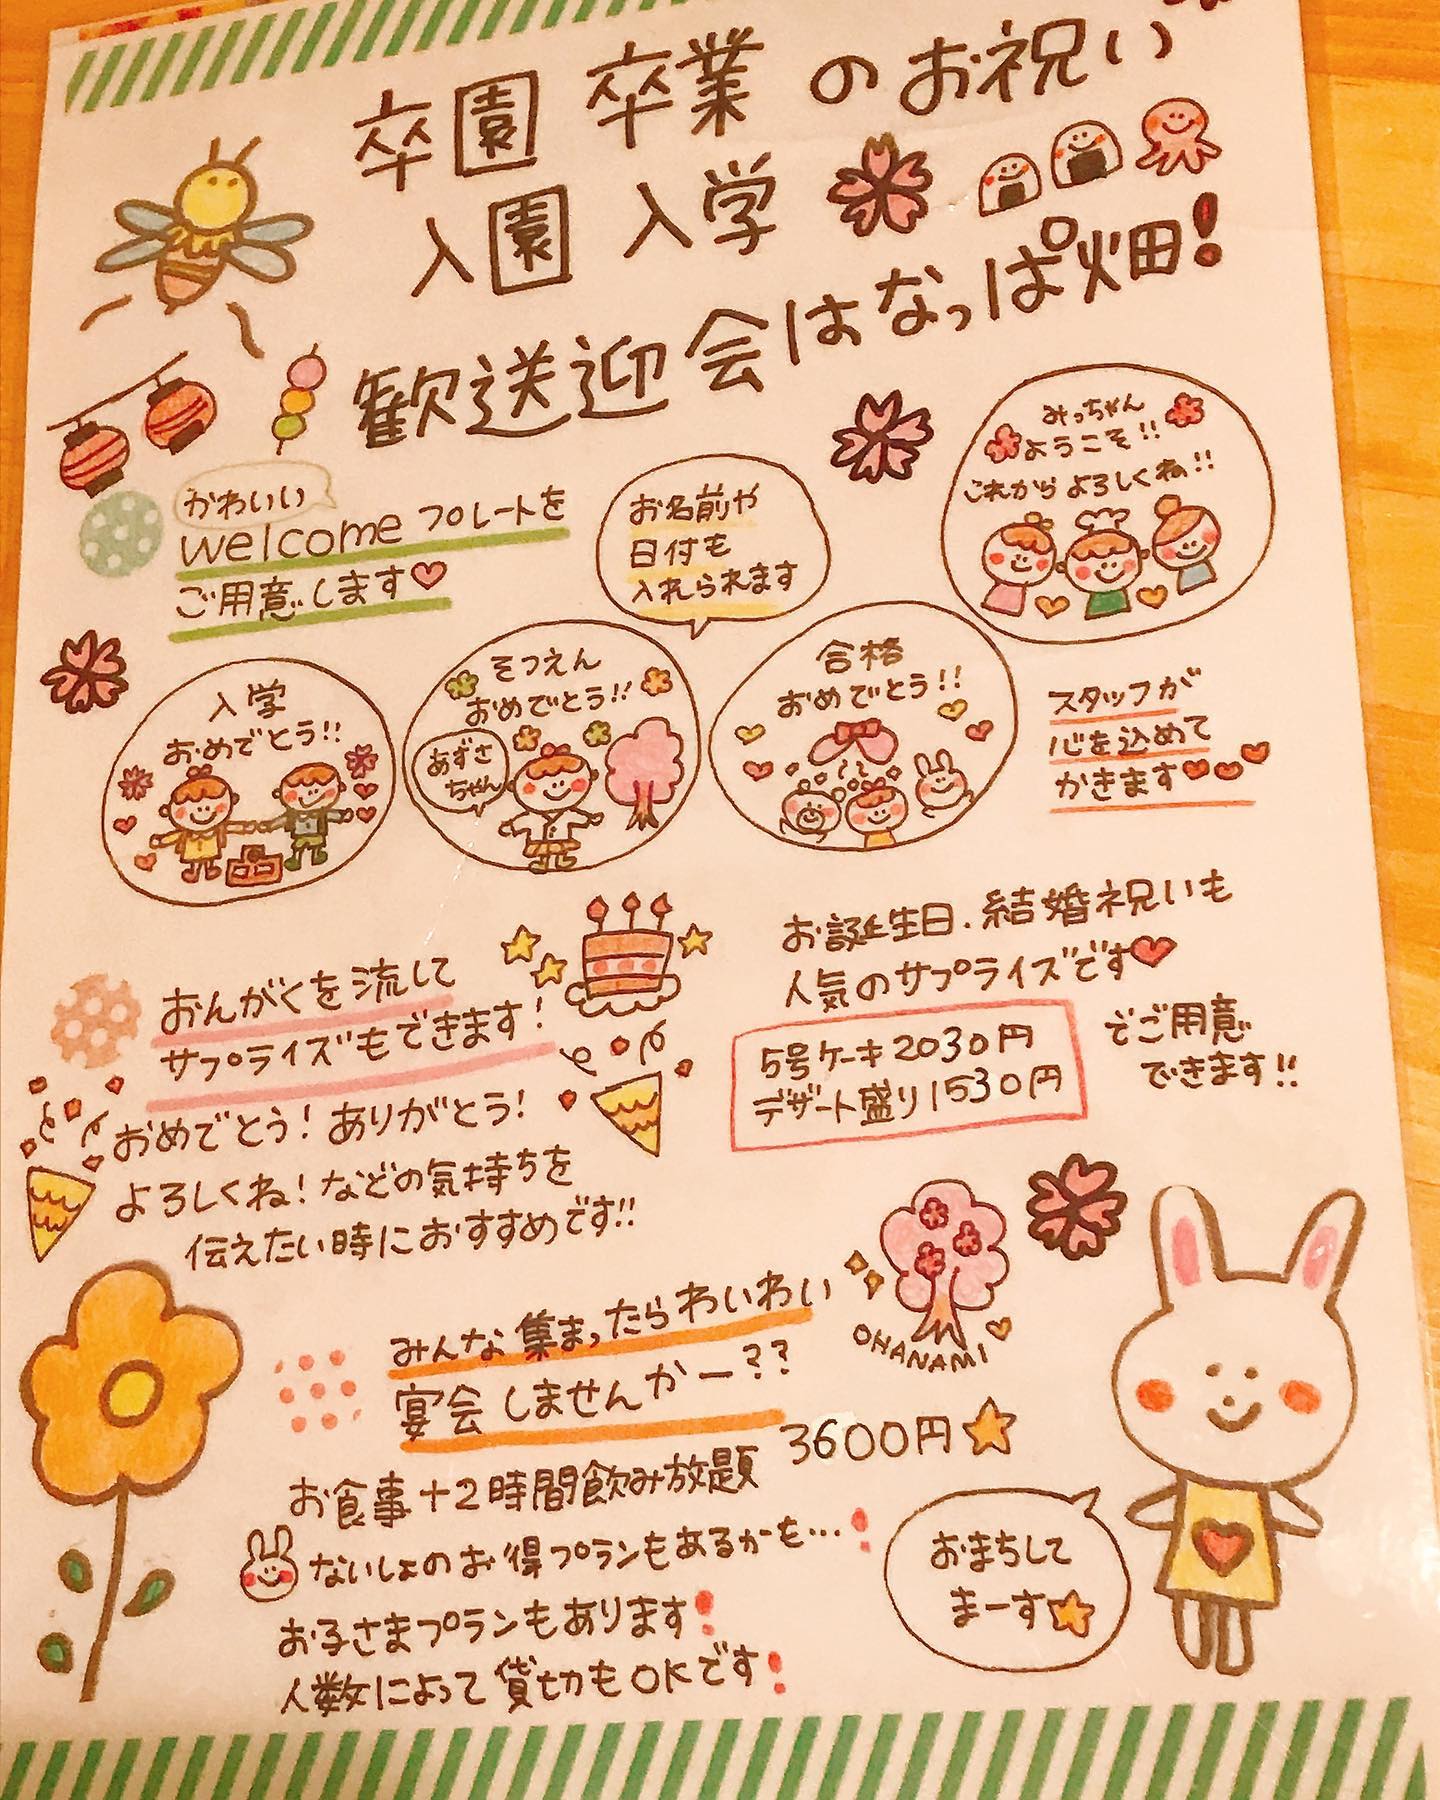 卒園 卒業 のお祝い
入園 入学
歓送迎会はなっぱ畑!
かわいい
welcome プレートを
ご用意します
お名前や
日付も
入れられます
みっちゃん
ようこそ!!
これから よろしくね!!
入学
おめでとう!!
そつえん
おめでとう!!
あずさ
ちゃん
合格
おめでとう!!
スタッフが
心を込めて
かきます
おんがくを流して
サプライズもできます!
おめでとう!ありがとう!
よろしくね!などの気持ちを
伝えたい時におすすめです!!
お誕生日.結婚祝いも
人気のサプライズです
5号ケーキ2030円
デザート盛り1530円
でご用意
できます!!
みんな集まったらわいわい
宴会しませんかー??
OHANAMI
お食事+2時間飲み放題 3600円
ないしょのお得プランもあるかも…!
お子さまプランもあります!
人数によって貸切もOKです!
おまちして
まーす